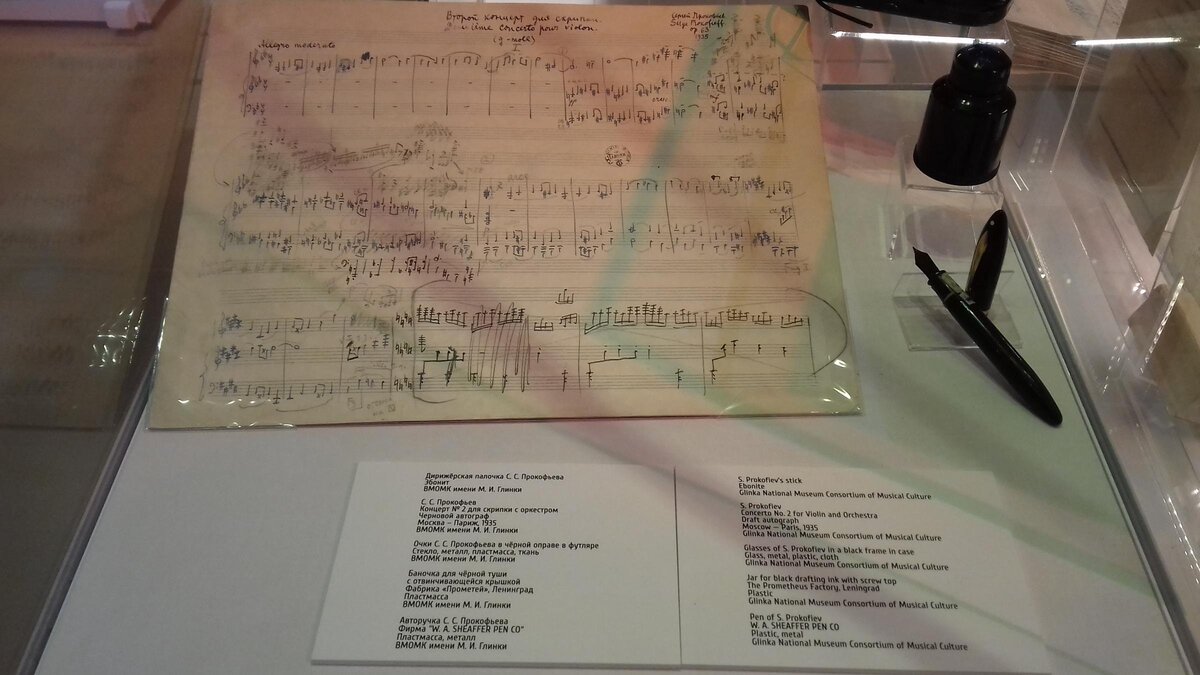 Второй концерт для скрипки.
concerto pour violon.
(g-moll)
I
Сергей Прокофьев
Serge Prokofieff
op 63
1935
Allegro moderato
Дирижёрская палочка С. С. Прокофьева
Эбонит
ВМОМК имени М. И. Глинки
С. С. Прокофьев
Концерт № 2 для скрипки с оркестром
Черновой автограф
Москва – Париж, 1935
ВМОМК имени М. И. Глинки
Очки С. С. Прокофьева в чёрной оправе в футляре
Стекло, металл, пластмасса, ткань
ВМОМК имени М. И. Глинки
Баночка для чёрной туши
с отвинчивающейся крышкой
Фабрика «Прометей», Ленинград
Пластмасса
ВМОМК имени М. И. Глинки
Авторучка С. С. Прокофьева
Фирма "W. A. SHEAFFER PEN CO"
Пластмасса, металл
ВМОМК имени М. И. Глинки
S. Prokofiev's stick
Ebonite
Glinka National Museum Consortium of Musical Culture
S. Prokofiev
Concerto No. 2 for Violin and Orchestra
Draft autograph
Moscow — Paris, 1935
Glinka National Museum Consortium of Musical Culture
Glasses of S. Prokofiev in a black frame in case
Glass, metal, plastic, cloth
Glinka National Museum Consortium of Musical Culture
Jar for black drafting ink with screw top
The Prometheus Factory, Leningrad
Plastic
Glinka National Museum Consortium of Musical Culture
Pen of S. Prokofiev
W. A. SHEAFFER PEN CO
Plastic, metal
Glinka National Museum Consortium of Musical Culture